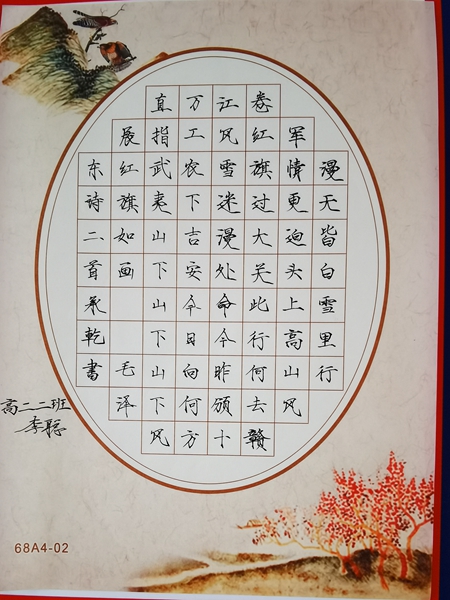 漫天皆白雪里行
军情更迫头上高山风
卷红旗过大关此行何去赣
江风雪迷漫处命令昨颁十
万工农下吉安今日向何方
直指武夷山下山下山下风
展红旗如画 毛泽
东诗二首承乾書
高二二班
李聪
68A4-02